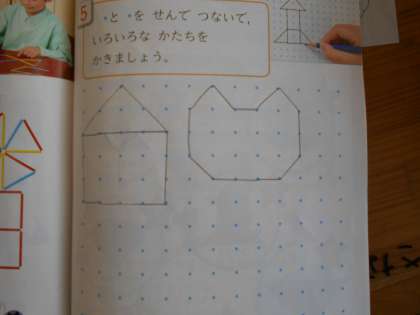 5
•と •を せんで つないで,
いろいろな かたちを
かきましょう。